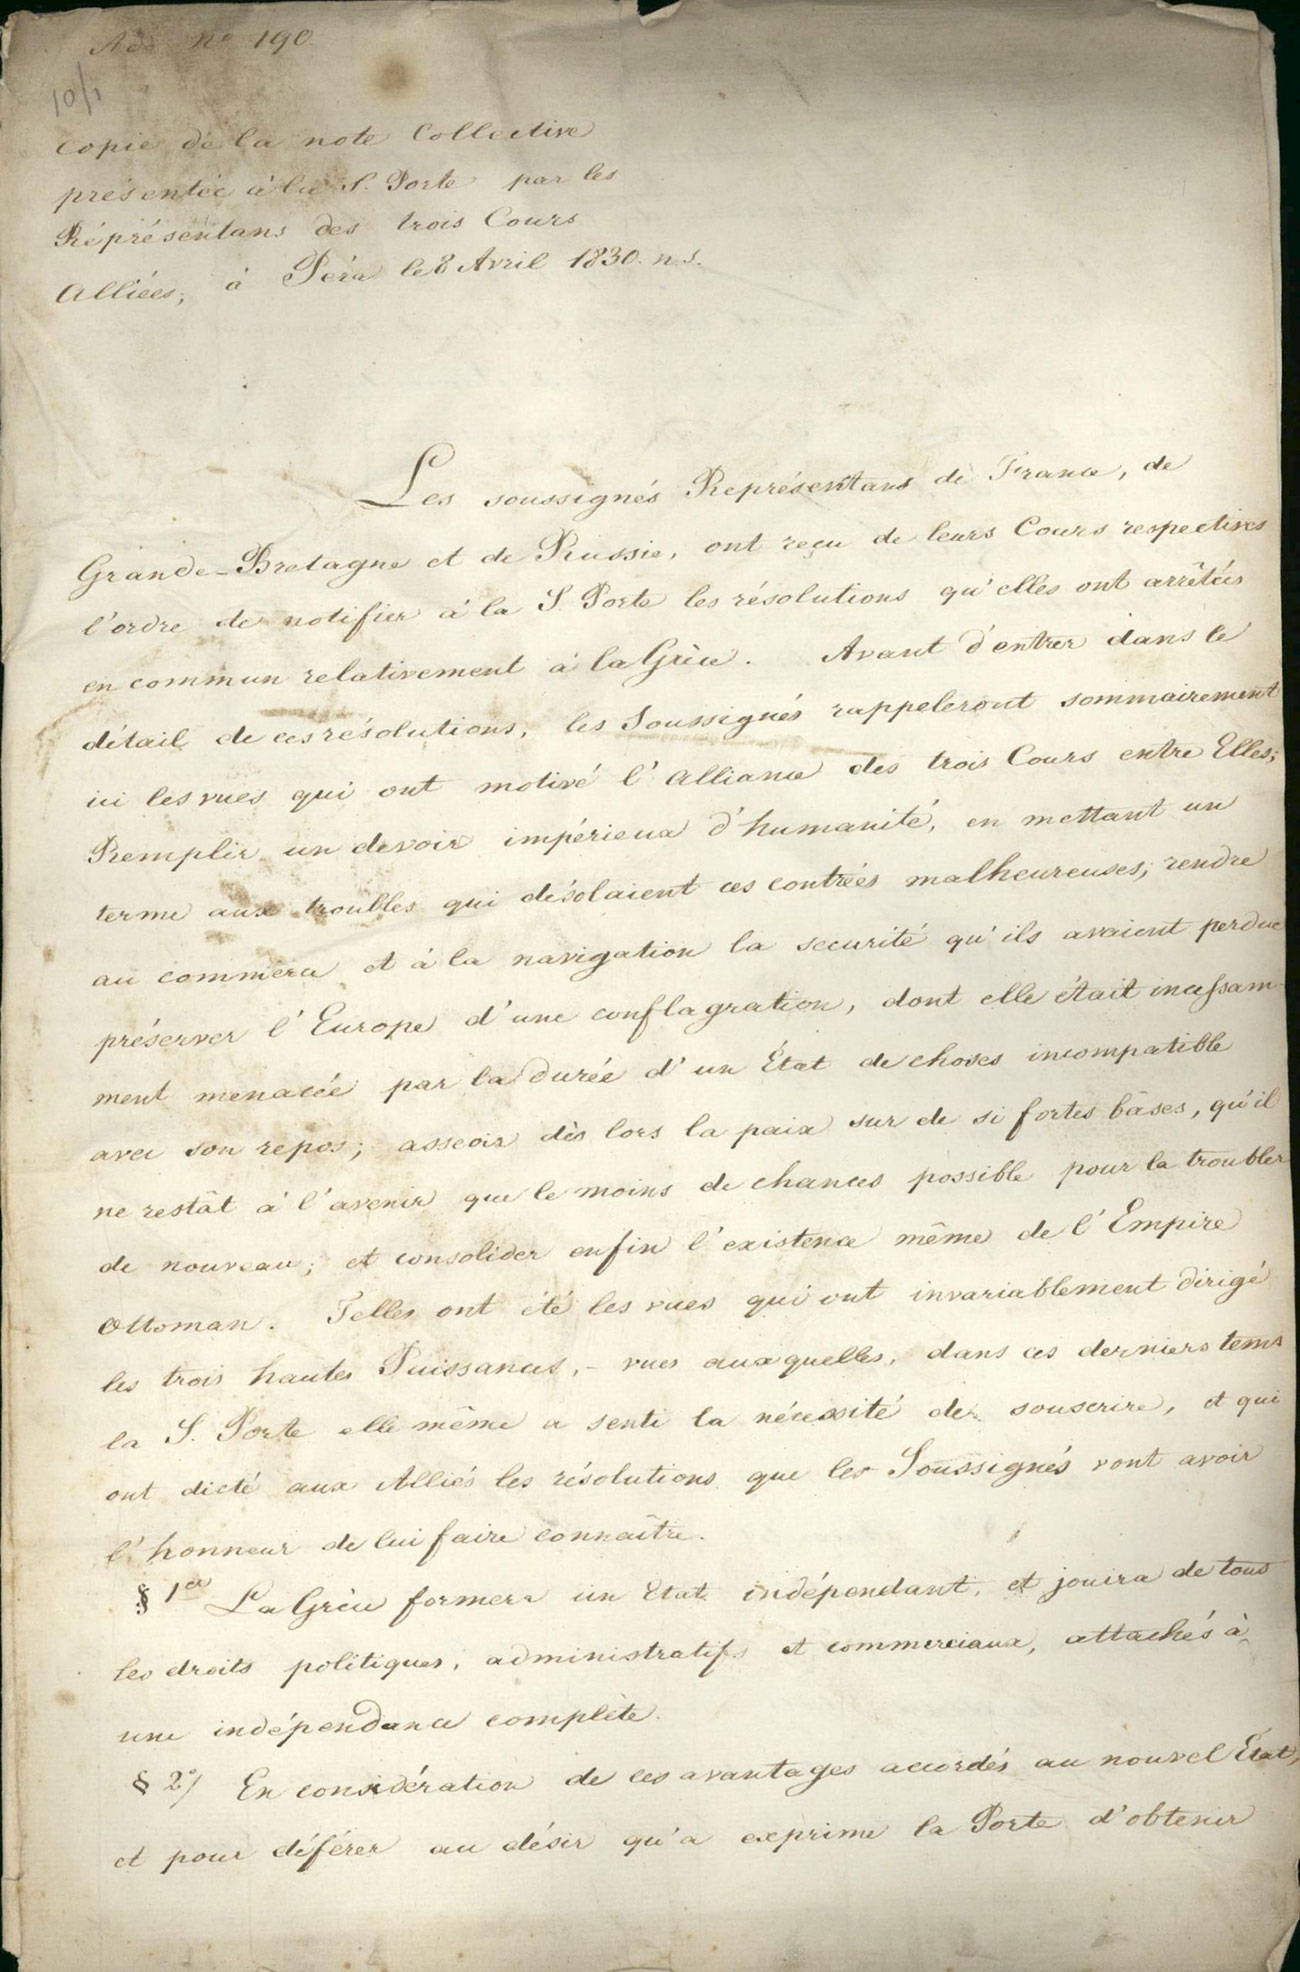 Add nº 190.
10/1
Copie de la note Collective
présentée à la S. Porte par les
Réprésentans des trois Cours
Alliées, à Péra le 8 Avril 1830. n.s.
Les soussignés Représentans de France, de
Grande-Bretagne et de Russie, ont reçu de leurs Cours respectives
l'ordre de notifier à la S. Porte les résolutions qu'elles ont arrêtées
en commun relativement à la Grèce. Avant d'entrer dans le
détail de ces résolutions, les Soussignés rappeleront sommairement
ici les vues qui ont motivé l'Alliance des trois Cours entre Elles;
Remplir un devoir impérieux d'humanité, en mettant un
terme aux troubles qui désolaient ces contrées malheureuses; rendre
au commerce et à la navigation la securité qu'ils avaient perdue
préserver l'Europe d'une conflagration, dont elle était incessam-
ment menacée par la durée d'un État de choses incompatible
avec son repos; asseoir dès lors la paix sur de si fortes bâses, qu'il
ne restât à l'avenir que le moins de chances possible pour la troubler
de nouveau; et consolider enfin l'existence même de l'Empire
Ottoman. Telles ont été les vues qui ont invariablement dirigé
les trois hautes Puissances, - vues auxquelles, dans ces derniers tems
la S. Porte elle même a senti la nécessité de souscrire, et qui
ont dicté aux Alliés les résolutions que les Soussignés vont avoir
l'honneur de lui faire connaître.
§ 1er La Grèce formera un Etat indépendant, et jouira de tous
les droits politiques, administratifs et commerciaux, attachés à
une indépendance complète.
§ 2º/ En considération de ces avantages accordés au nouvel État,
et pour déférer au désir qu'a exprimé la Porte d'obtenir